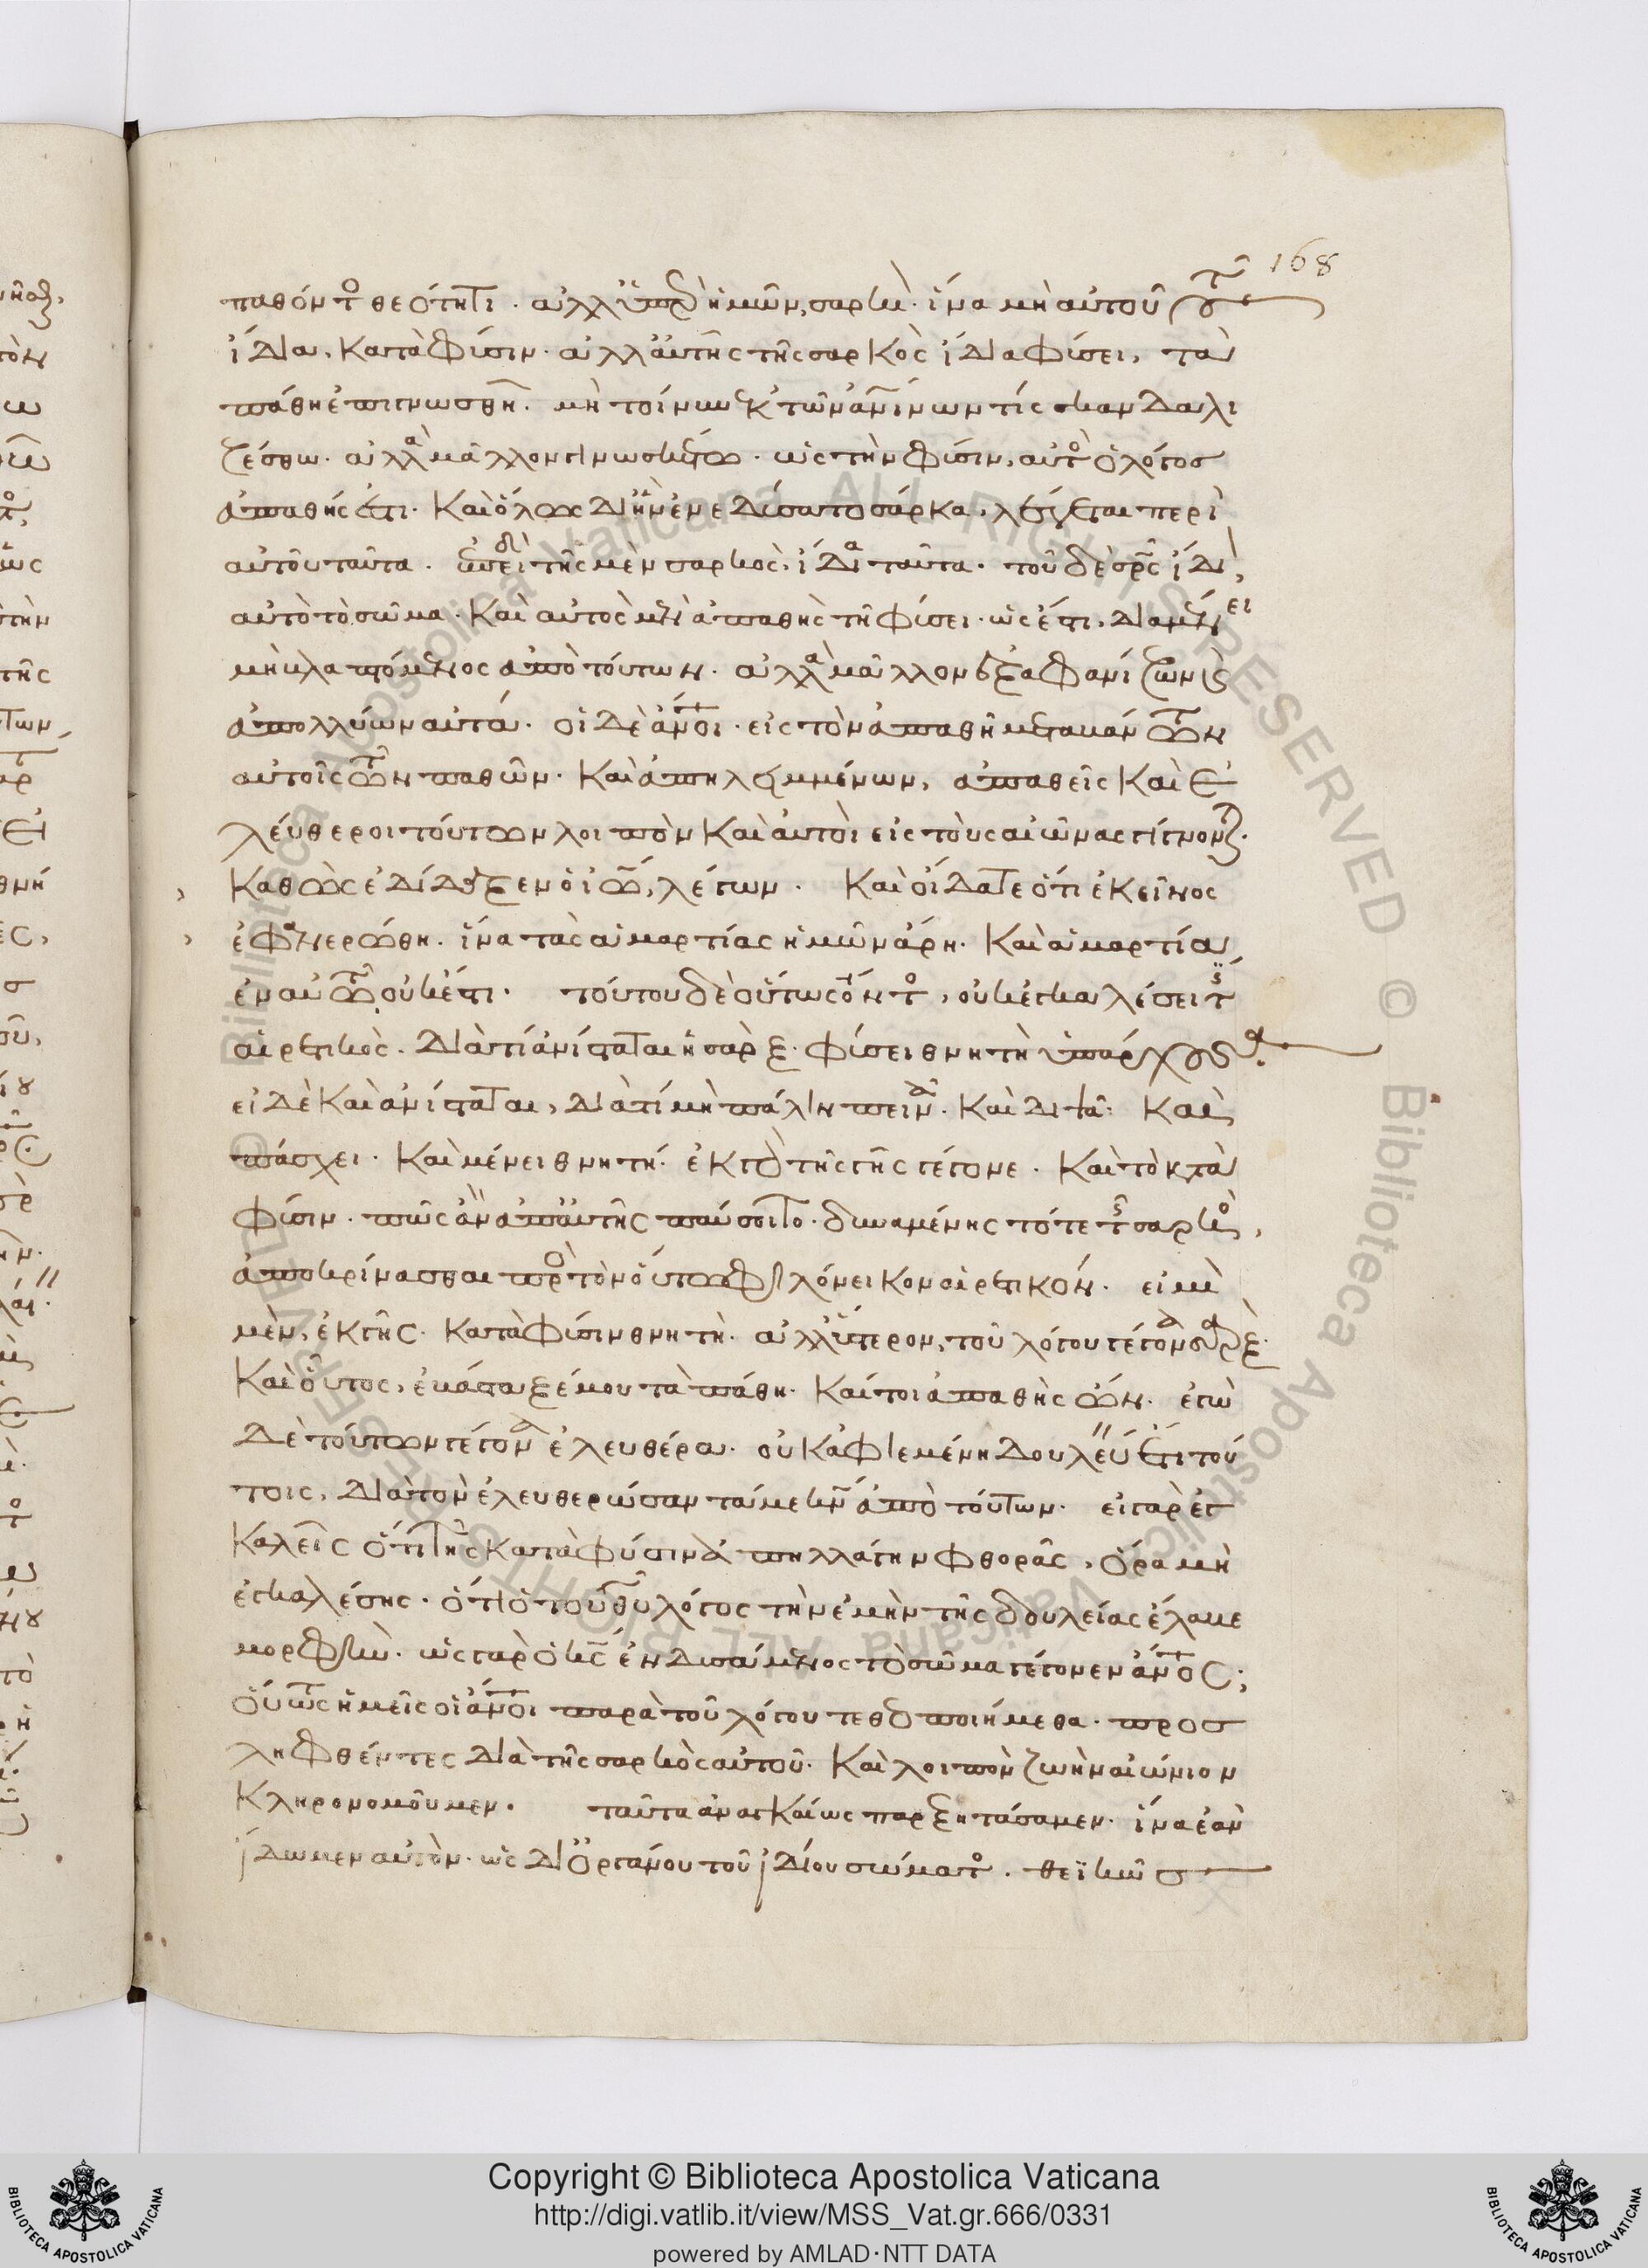 168
παθόντος θεότητι · ἀλλ' ὑπὲρ ἡμῶν, σαρκὶ · ἵνα μὴ αὐτοῦ τοῦ λόγου
ἴδια, κατὰ φύσιν · ἀλλ' αὐτῆς τῆς σαρκὸς ἴδια φύσει, τὰ
πάθη ἐπιγνωσθῇ. μὴ τοίνυν ἐκ τῶν ἀνθρωπίνων τίς σκανδαλι
ζέσθω · ἀλλὰ μᾶλλον γινωσκέτω · ὡς τὴν φύσιν, αὐτὸς ὁ λόγος
ἀπαθής ἐστι · καὶ ὅμως δι' ἣν ἐνεδύσατο σάρκα, λέγεται περὶ
αὐτοῦ ταῦτα · ἐπειδὴ τῆς μὲν σαρκὸς, ἴδια ταῦτα · τοῦ δὲ σωτῆρος ἴδιον,
αὐτὸ τὸ σῶμα · καὶ αὐτὸς μὲν ἀπαθὴς τῇ φύσει · ὡς ἔστι, διαμένει
μὴ βλαπτόμενος ἀπὸ τούτων · ἀλλὰ μᾶλλον ἐξαφανίζων καὶ
ἀπολλύων αὐτά · οἱ δὲ ἄνθρωποι · εἰς τὸν ἀπαθῆ μεταβάντων
αὐτοῖς τῶν παθῶν · καὶ ἀπηλειμμένων, ἀπαθεῖς καὶ ἐ
λεύθεροι τούτων λοιπὸν καὶ αὐτοὶ εἰς τοὺς αἰῶνας γίγνονται ·
καθὼς ἐδίδαξεν ὁ ἰωάννης, λέγων · καὶ οἴδατε ὅτι ἐκεῖνος
ἐφανερώθη · ἵνα τὰς ἁμαρτίας ἡμῶν ἄρῃ · καὶ ἁμαρτία,
ἐν αὐτῷ οὐκ ἔστι · τούτου δὲ οὕτως ὄντος, οὐκ ἐγκαλέσει τις
αἱρετικὸς · διὰ τί ἀνίσταται ἡ σὰρξ · φύσει θνητὴ ὑπάρχουσα ·
εἰ δὲ καὶ ἀνίσταται, διὰ τί μὴ πάλιν πεινᾷ · καὶ διψᾷ · καὶ
πάσχει · καὶ μένει θνητή · ἐκ γὰρ τῆς γῆς γέγονε · καὶ τὸ κατὰ
φύσιν · πῶς ἂν ἀπ' αὐτῆς παύσοιτο · δυναμένης τότε τῆς σαρκὸς,
ἀποκρίνασθαι πρὸς τὸν οὕτω φιλόνεικον αἱρετικόν · εἰμὶ
μὲν, ἐκ γῆς · κατὰ φύσιν θνητὴ · ἀλλ' ὕστερον, τοῦ λόγου γέγονα σάρξ ·
καὶ οὗτος, ἐβάσταξέ μου τὰ πάθη · καίτοι ἀπαθὴς ὤν · ἐγὼ
δὲ τούτων γέγονα ἐλευθέρα · οὐκ ἀφιεμένη δουλεύειν ἔτι τού
τοις, διὰ τὸν ἐλευθερώσαντά με κύριον ἀπὸ τούτων · εἰ γὰρ ἐγ
καλεῖς ὅτι τῆς κατὰ φύσιν ἀπηλλάγην φθορᾶς, ὅρα μὴ
ἐγκαλέσῃς · ὅτι ὁ τοῦ θεοῦ λόγος τὴν ἐμὴν τῆς δουλείας ἔλαβε
μορφὴν · ὡς γὰρ ὁ κύριος ἐνδυσάμενος τὸ σῶμα γέγονεν ἄνθρωπος ·
οὕτως ἡμεῖς οἱ ἄνθρωποι παρὰ τοῦ λόγου τεθεοποιήμεθα · προσ
ληφθέντες διὰ τῆς σαρκὸς αὐτοῦ · καὶ λοιπὸν ζωὴν αἰώνιον
κληρονομοῦμεν · ταῦτα ἀναγκαίως παρεξητάσαμεν · ἵνα ἐὰν
ἴδωμεν αὐτὸν · ὡς δι' ὀργάνου τοῦ ἰδίου σώματος · θεϊκῶς
Copyright © Biblioteca Apostolica Vaticana
http://digi.vatlib.it/view/MSS_Vat.gr.666/0331
powered by AMLAD·NTT DATA